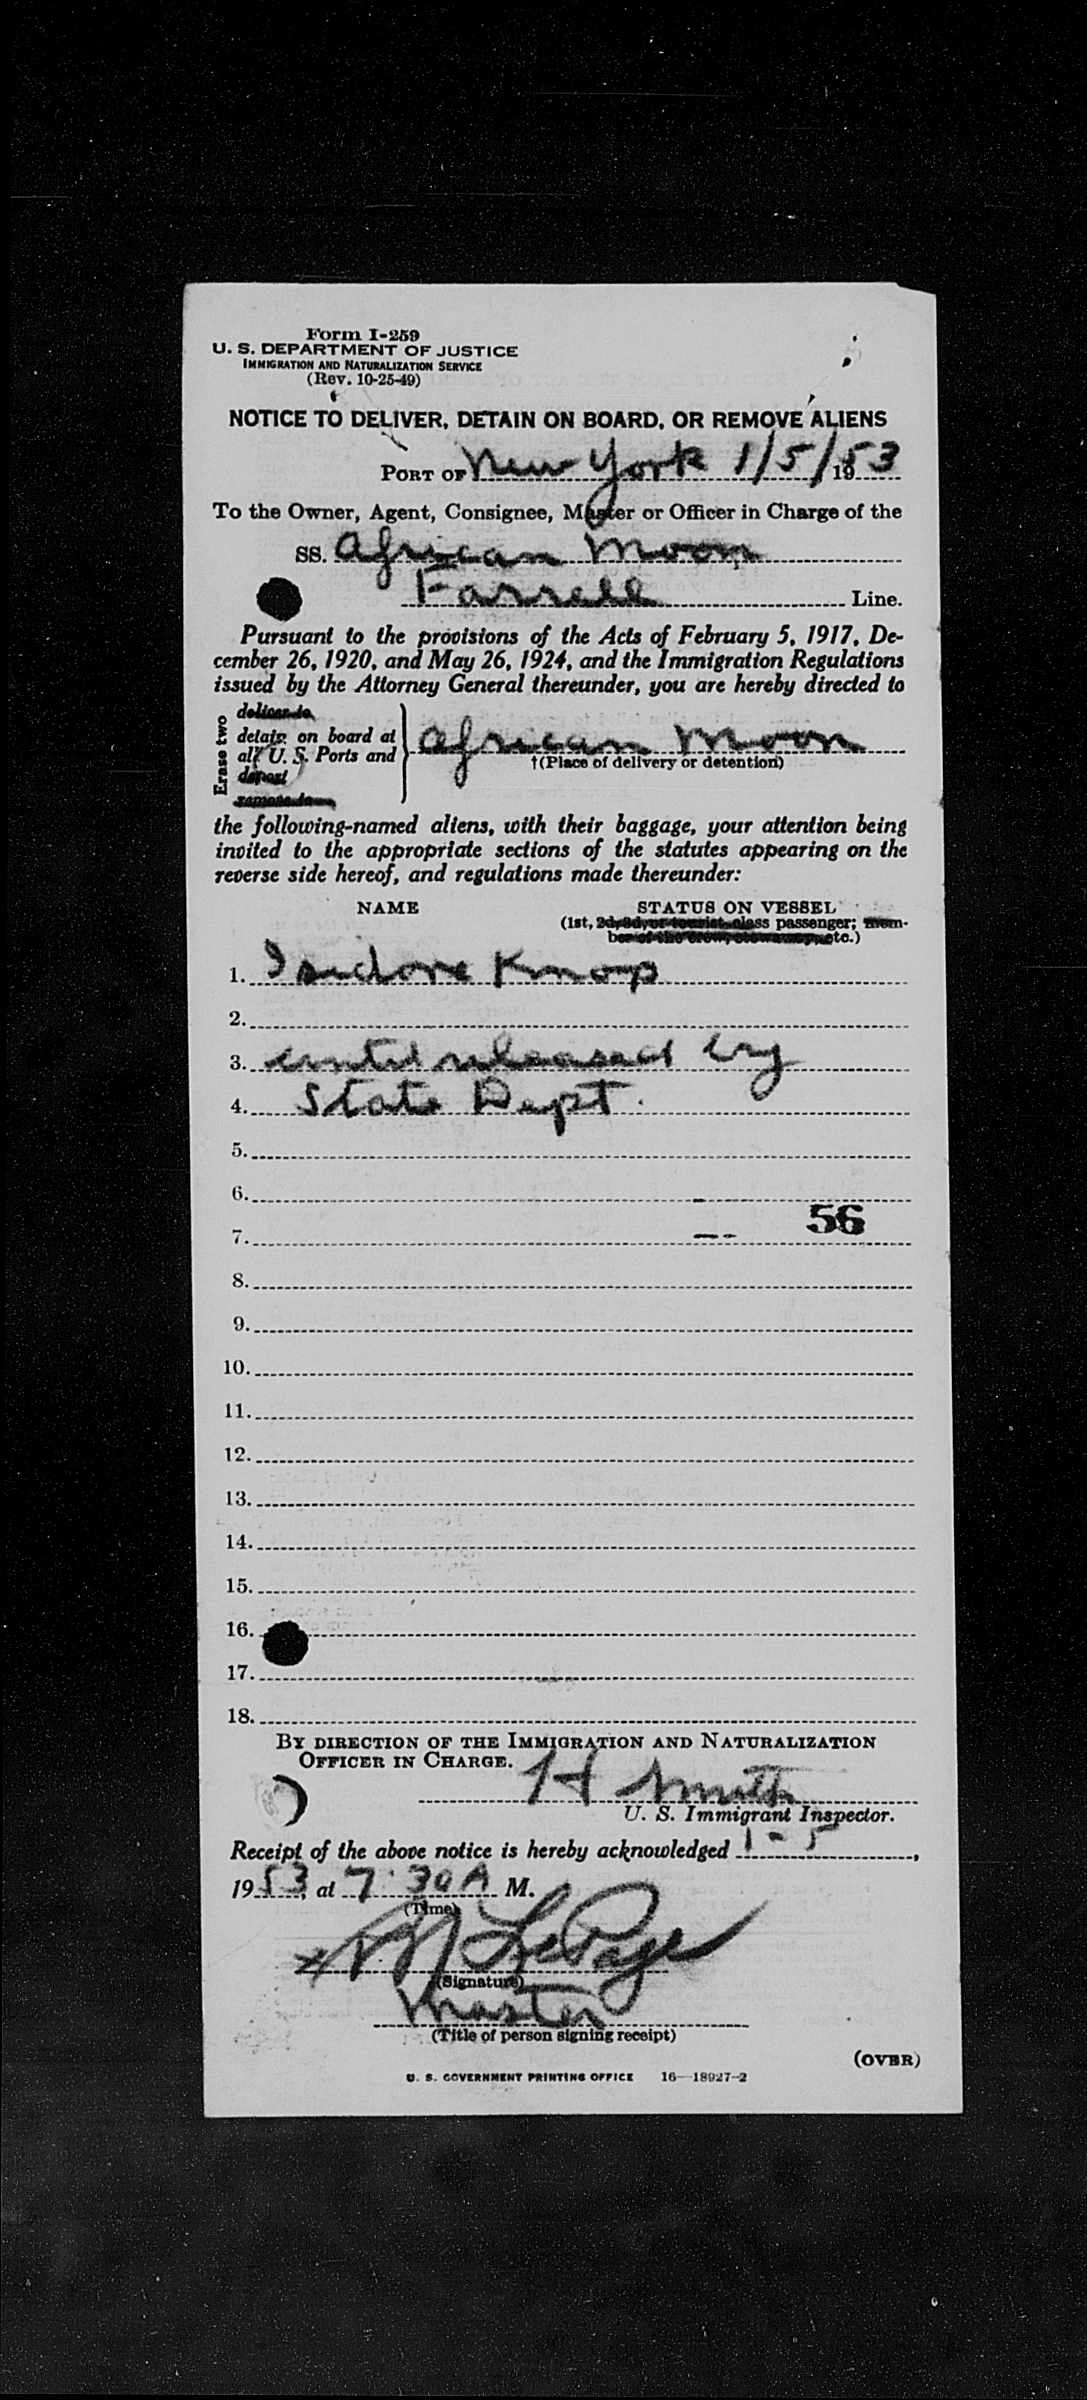 Form I-259
U. S. DEPARTMENT OF JUSTICE
IMMIGRATION AND NATURALIZATION SERVICE
(Rev. 10-25-49)
NOTICE TO DELIVER, DETAIN ON BOARD, OR REMOVE ALIENS
PORT OF New York 1/5/1953
To the Owner, Agent, Consignee, Master or Officer in Charge of the
SS. African Moon
Farrell Line.
Pursuant to the provisions of the Acts of February 5, 1917, De-
cember 26, 1920, and May 26, 1924, and the Immigration Regulations
issued by the Attorney General thereunder, you are hereby directed to
Erase two
deliver to
detain on board at
all U. S. Ports and
deport
remove to
African Moon
†(Place of delivery or detention)
the following-named aliens, with their baggage, your attention being
invited to the appropriate sections of the statutes appearing on the
reverse side hereof, and regulations made thereunder:
NAME STATUS ON VESSEL
(1st, 2d, 3d, or tourist class passenger; mem-
ber of the crew, stowaway, etc.)
1. Isidore Knop
2.
3. until released by
4. State Dept.
5.
6.
7. 56
8.
9.
10.
11.
12.
13.
14.
15.
16.
17.
18.
BY DIRECTION OF THE IMMIGRATION AND NATURALIZATION
OFFICER IN CHARGE.
H Smith
U. S. Immigrant Inspector.
Receipt of the above notice is hereby acknowledged 1-5,
1953, at 7:30 A M.
(Time)
LePage
(Signature)
Master
(Title of person signing receipt)
(OVER)
U. S. GOVERNMENT PRINTING OFFICE 16—18927-2